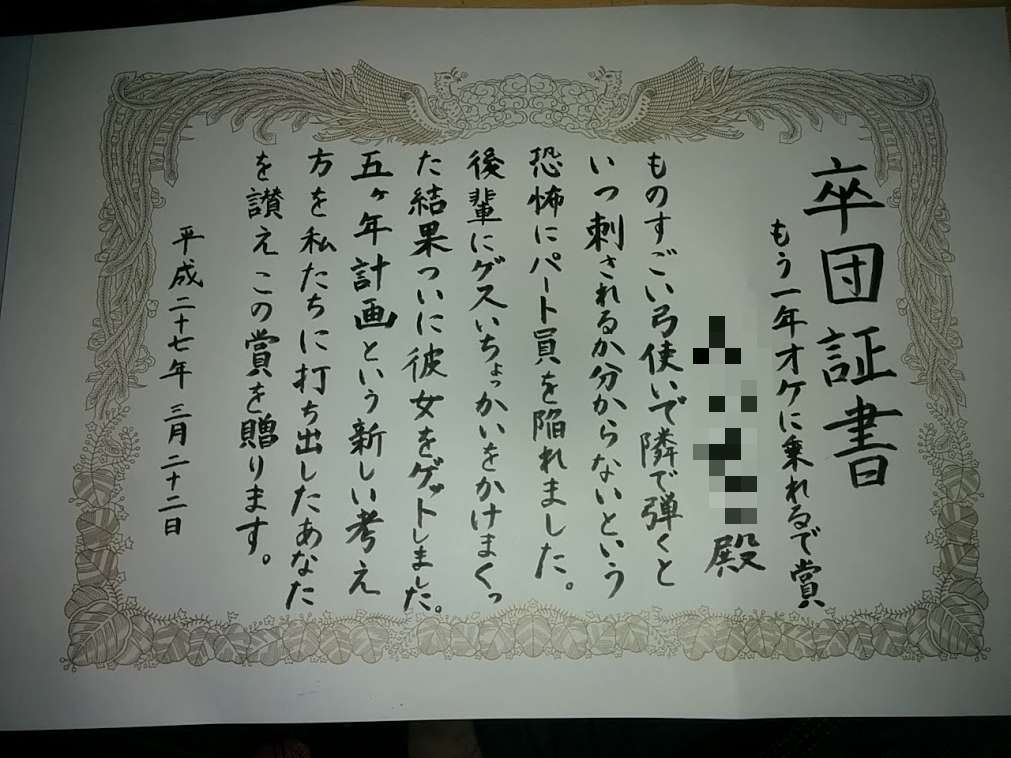 卒団証書
もう一年オケに乗れるで賞
殿
ものすごい弓使いで隣で弾くと
いつ刺されるか分からないという
恐怖にパート員を陥れました。
後輩にゲスいちょっかいをかけまくっ
た結果ついに彼女をゲットしました。
五ヶ年計画という新しい考え
方を私たちに打ち出したあなた
を讃えこの賞を贈ります。
平成二十七年 三月二十二日